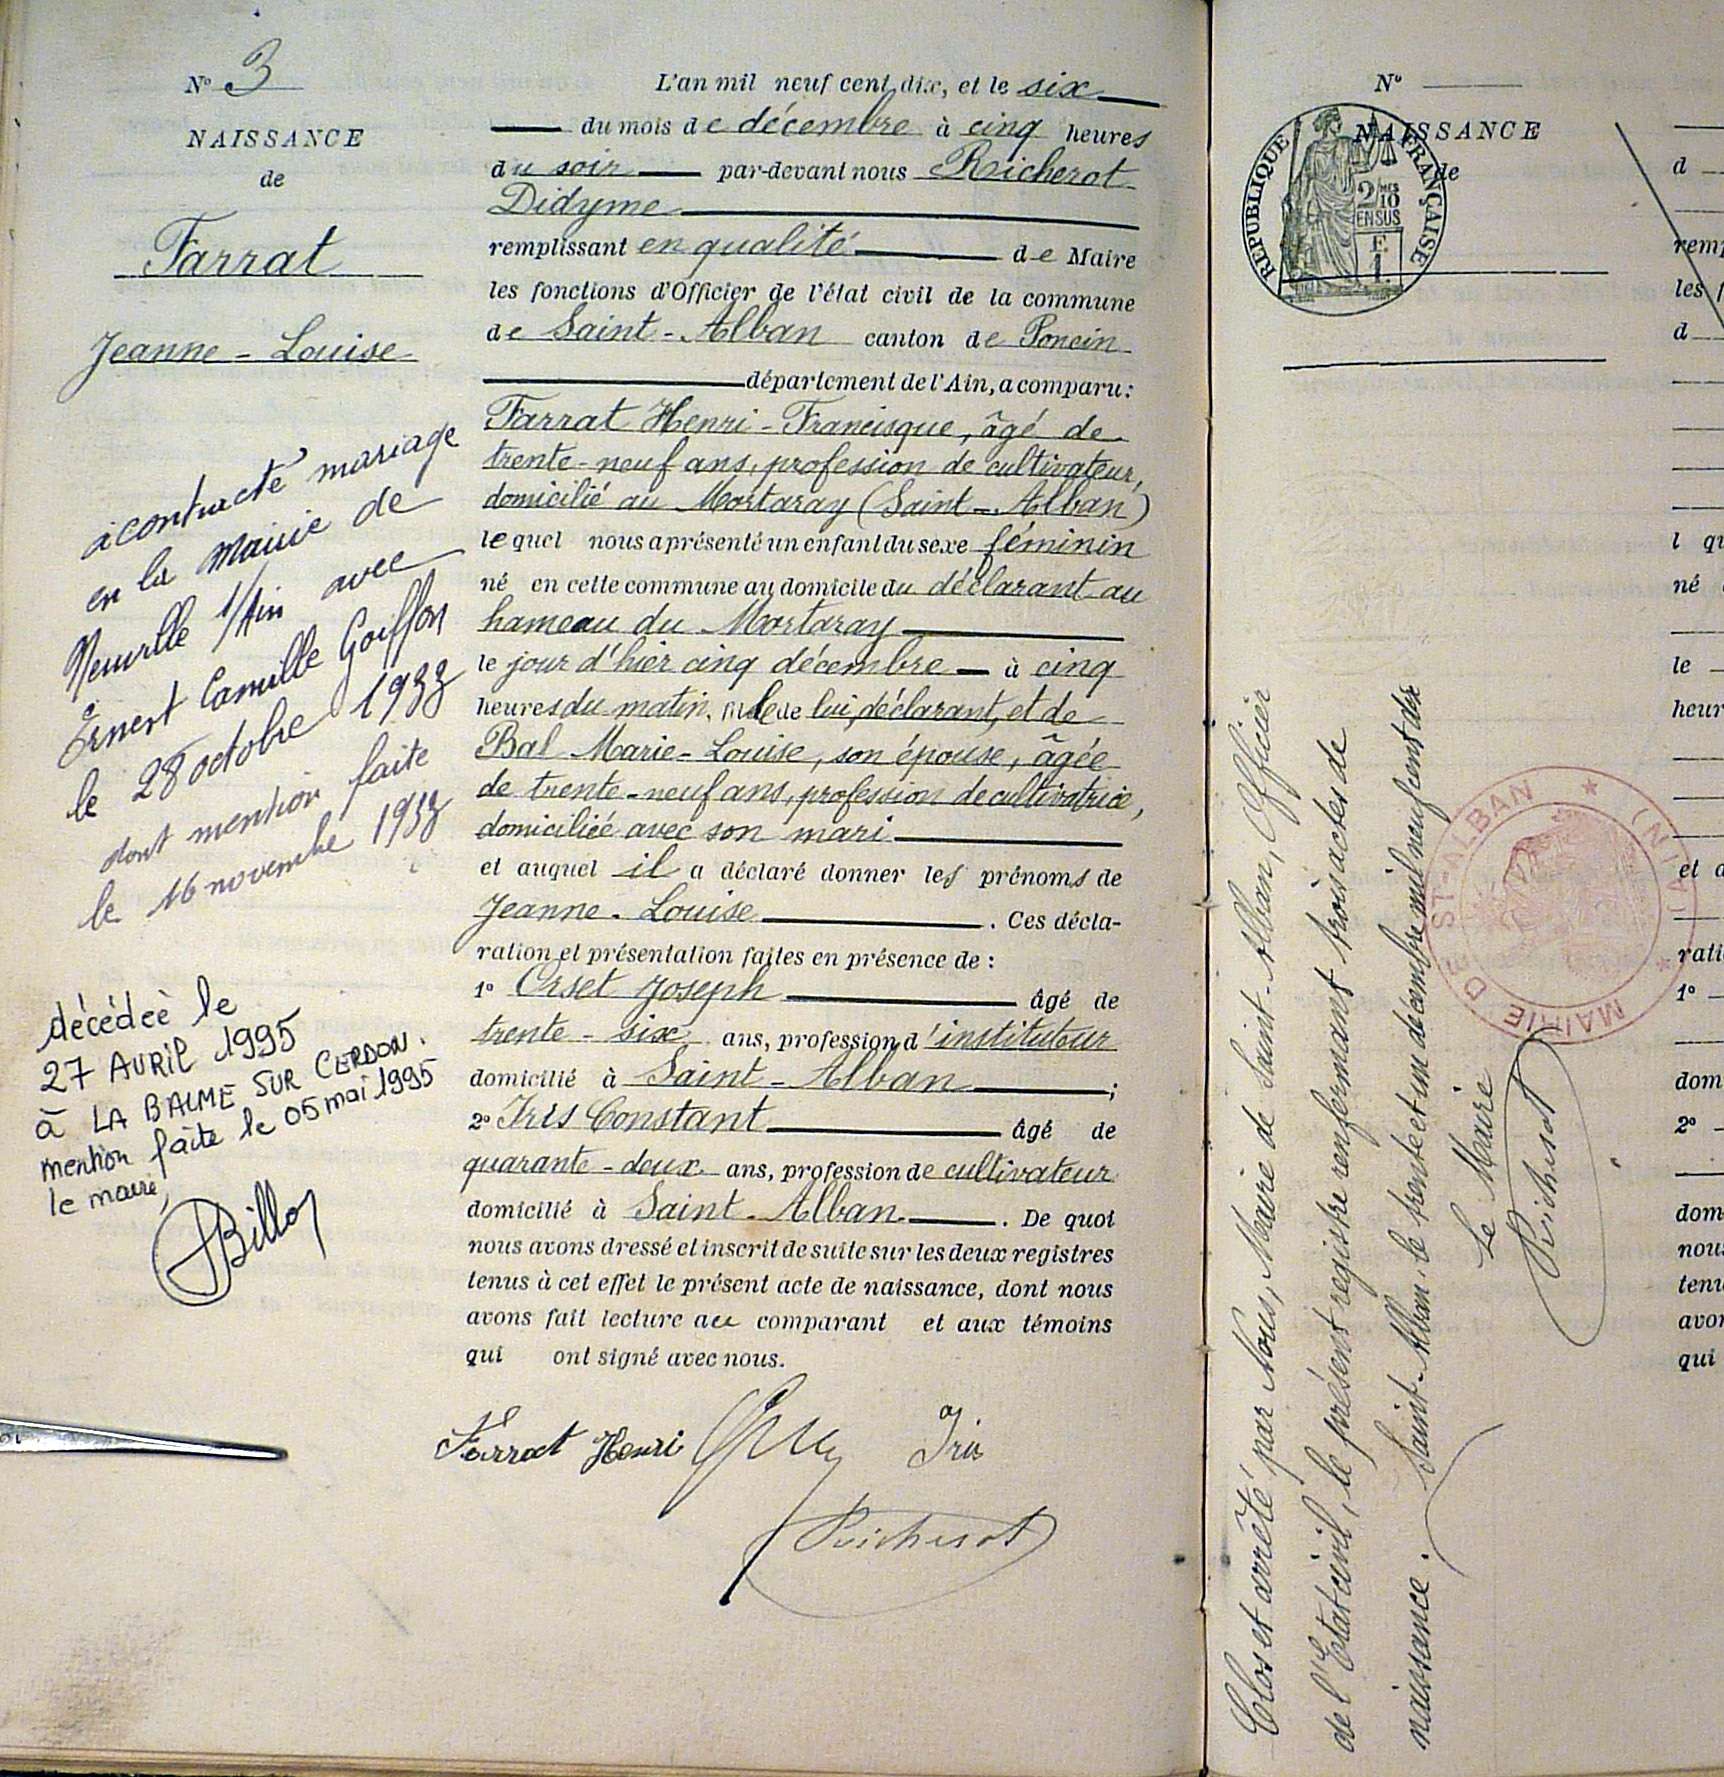 N° 3
NAISSANCE
de
Farrat
Jeanne - Louise
a contracté mariage
en la Mairie de
Neuville s/Ain avec
Ernest Camille Goiffon
le 28 octobre 1933
dont mention faite
le 16 novembre 1933
décédée le
27 AVRIL 1995
à LA BALME SUR CERDON.
mention faite le 05 mai 1995
le maire,
Billon
L'an mil neuf cent dix, et le six
du mois de décembre à cinq heures
du soir par-devant nous Richerot
Didyme
remplissant en qualité de Maire
les fonctions d'Officier de l'état civil de la commune
de Saint-Alban canton de Poncin
département de l'Ain, a comparu :
Farrat Henri-Francisque, âgé de
trente-neuf ans, profession de cultivateur,
domicilié au Mortaray (Saint-Alban)
lequel nous a présenté un enfant du sexe féminin
né en cette commune au domicile du déclarant au
hameau du Mortaray
le jour d'hier cinq décembre à cinq
heures du matin, fille de lui, déclarant, et de
Bal Marie-Louise, son épouse, âgée
de trente-neuf ans, profession de cultivatrice,
domiciliée avec son mari
et auquel il a déclaré donner les prénoms de
Jeanne-Louise. Ces décla-
ration et présentation faites en présence de :
1° Orset Joseph âgé de
trente-six ans, profession d'instituteur
domicilié à Saint-Alban ;
2° Iris Constant âgé de
quarante-deux ans, profession de cultivateur
domicilié à Saint-Alban. De quoi
nous avons dressé et inscrit de suite sur les deux registres
tenus à cet effet le présent acte de naissance, dont nous
avons fait lecture au comparant et aux témoins
qui ont signé avec nous.
Farrat Henri Iris
Richerot
N°
NAISSANCE
de
REPUBLIQUE FRANÇAISE
2/10 MES
EN SUS
E.
1.
Clos et arrêté par Nous, Maire de Saint-Alban, Officier
de l'Etat civil, le présent registre renfermant trois actes de
naissance. Saint-Alban, le trente et un décembre mil neuf cent dix
Le Maire
Richerot
MAIRIE DE ST-ALBAN * (AIN) *
d
rem
les f
d
l qu
né
le
heur
et a
rati
1°
dom
2°
dom
nous
tenu
avon
qui